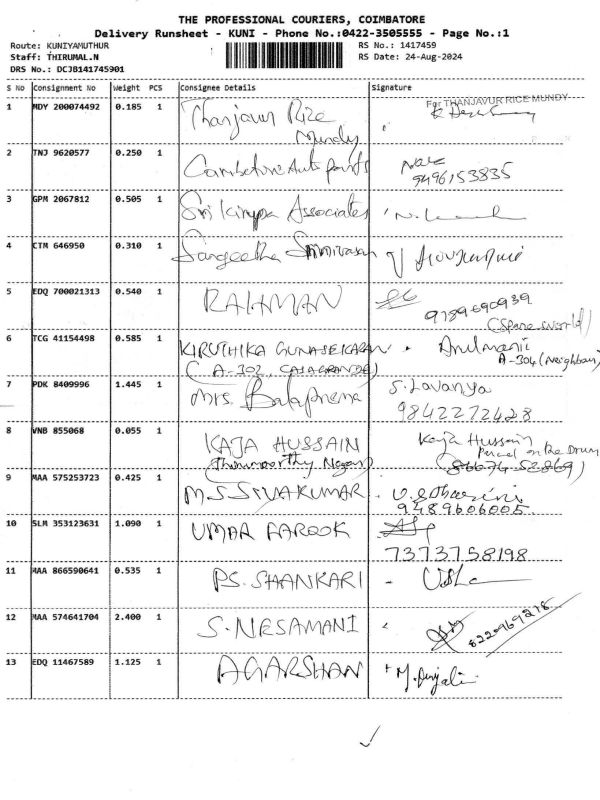 THE PROFESSIONAL COURIERS, COIMBATORE
Delivery Runsheet - KUNI - Phone No.:0422-3505555 - Page No.:1
Route: KUNIYAMUTHUR RS No.: 1417459
Staff: THIRUMAL.N RS Date: 24-Aug-2024
DRS No.: DCJB141745901
S No Consignment No Weight PCS Consignee Details Signature
1 MDY 200074492 0.185 1 Thanjavur Rice For THANJAVUR RICE MUNDY
Mundy
2 TNJ 9620577 0.250 1 Coimbatore Auto parts
9496153835
3 GPM 2067812 0.505 1 Sri Kirupa Associates
4 CTM 646950 0.310 1 Sangeetha Srinivasan
5 EDQ 700021313 0.540 1 RAHMAN 9189690939
(Spare world)
6 TCG 41154498 0.585 1 KIRUTHIKA GUNASEKARAN
(A-302, CASAGRANDE) A-304 (Neighbour)
7 PDK 8409996 1.445 1 Mrs. Balaprema S. Lavanya
9842272428
8 VNB 855068 0.055 1 KAJA HUSSAIN Kaja Hussain
Nagar) Parcel on the Drum
(86674-52869)
9 MAA 575253723 0.425 1 M.S SIVAKUMAR
9489606005
10 SLM 353123631 1.090 1 UMAR FAROOK
7373758198
11 MAA 866590641 0.535 1 PS. SHANKARI
12 MAA 574641704 2.400 1 S. NESAMANI 8220969218
13 EDQ 11467589 1.125 1 AGARSHAN M. Anjali